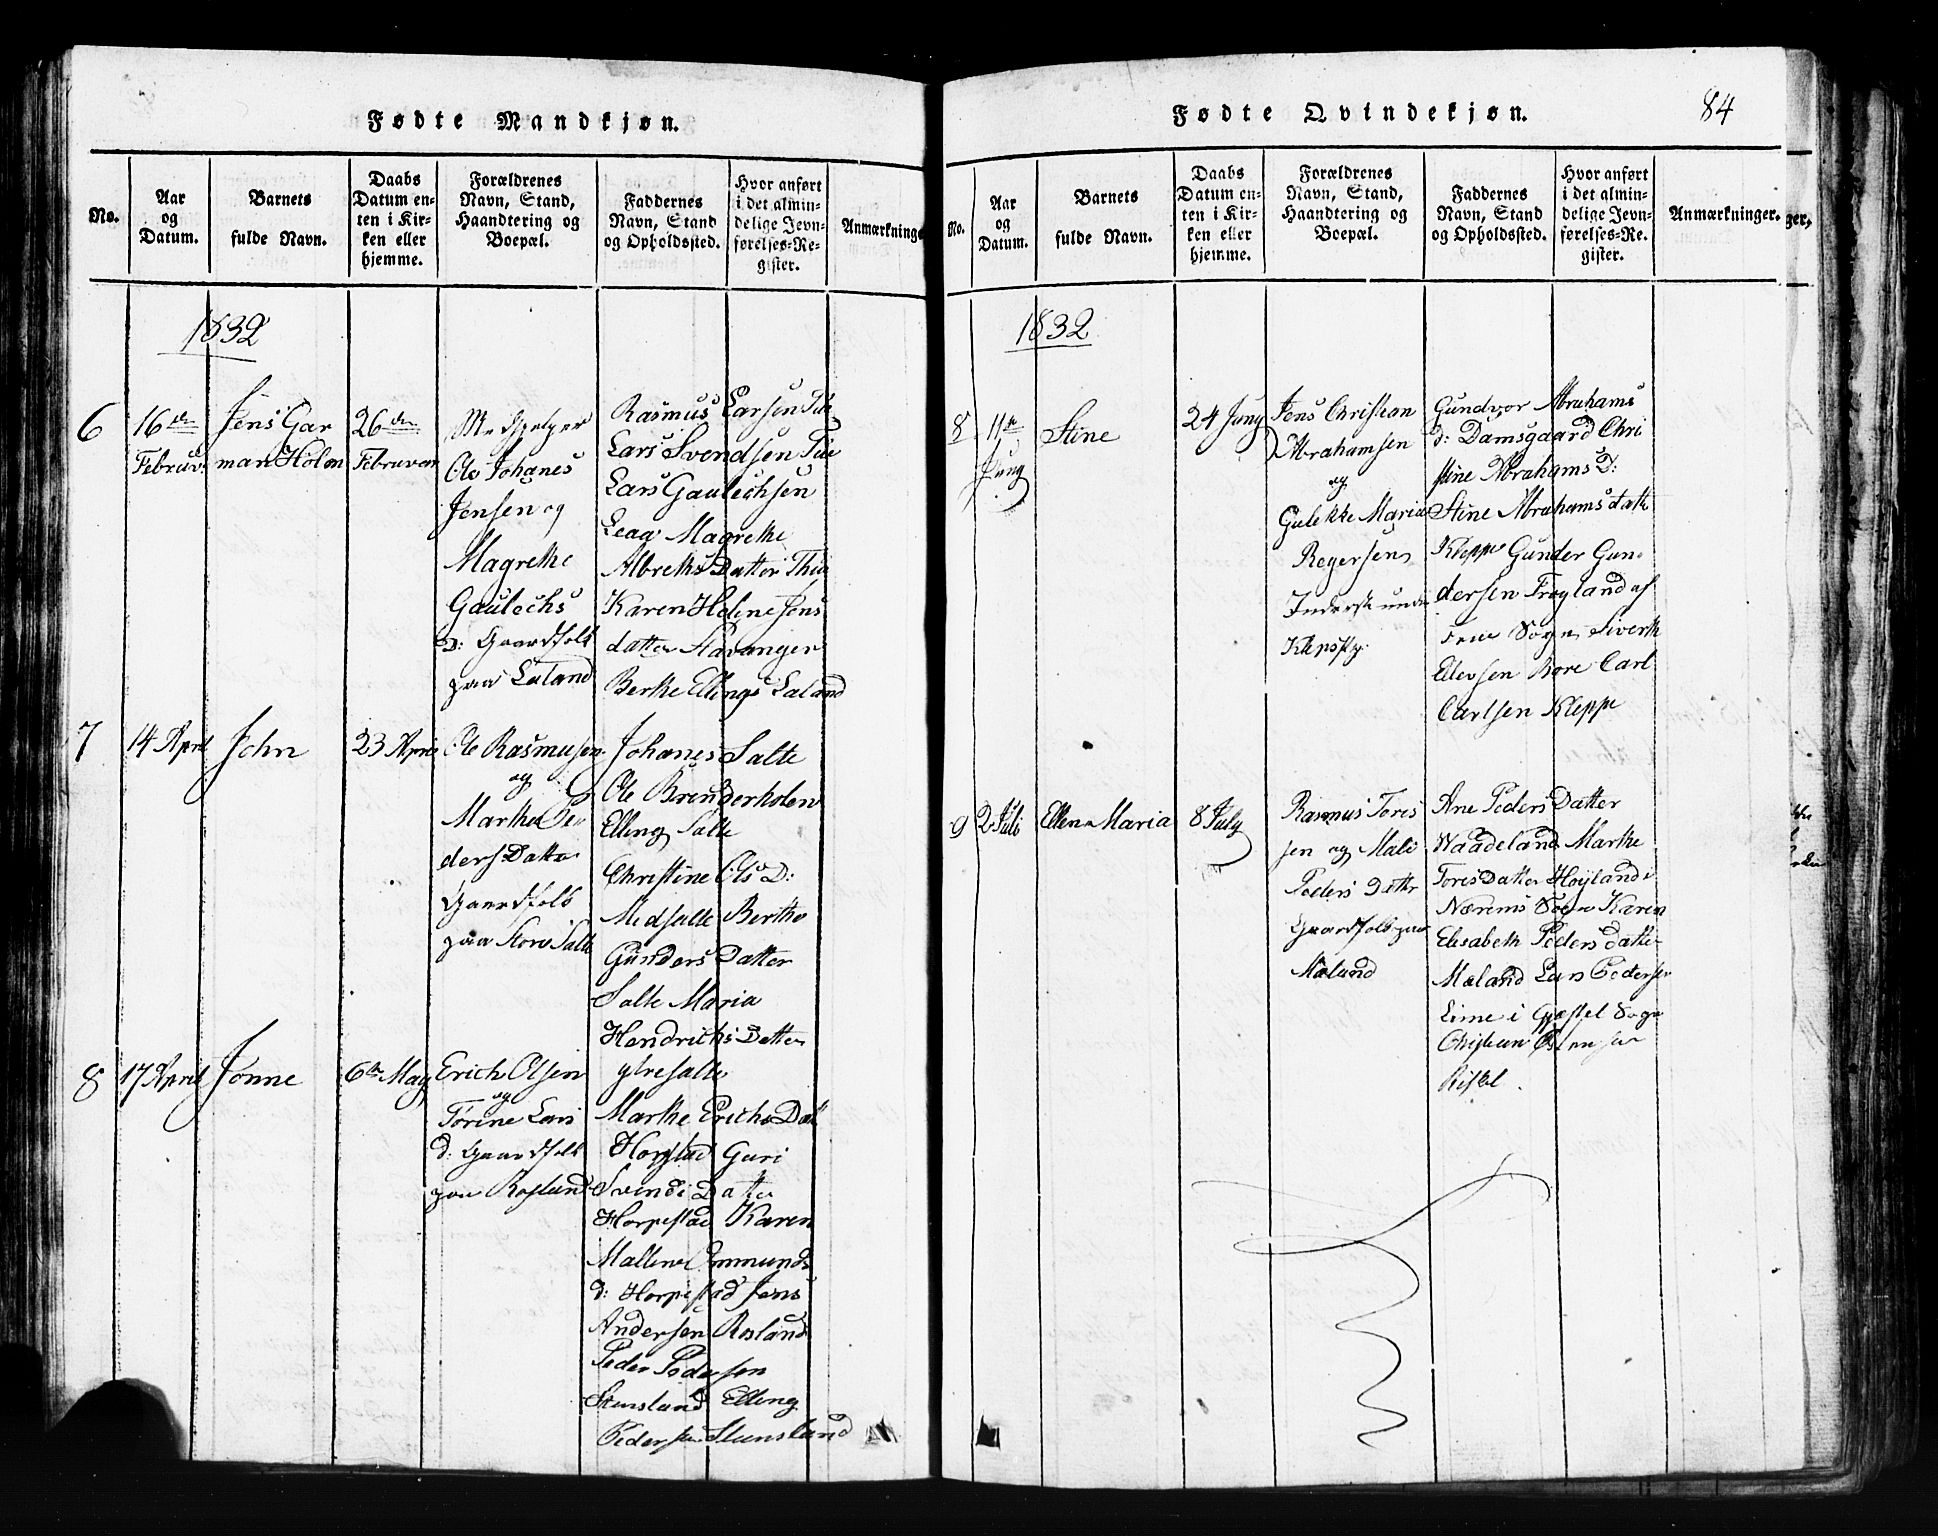 Fødte Mandkjøn.
No.
Aar
og
Datum.
Barnets
fulde Navn.
Daabs
Datum en-
ten i Kir-
ken eller
hjemme.
Forældrenes
Navn, Stand,
Haandtering og
Boepæl.
Faddernes
Navn, Stand
og Opholdssted.
Hvor anført
i det almin-
delige Jevn-
førelses-Re-
gister.
Anmærkninge
1832
6
16de
Februv.
Jens Gar
man Holm
26de
Februvar
Medhjelper
Ole Johanes
Jensen og
Magrethe
Gaulechs
D: Gaardfolk
paa Laland
Rasmus Larsen Tu
Lars Svendsen Tue
Lars Gaulechsen
Leaa Magrethe
Albreths Datter Thu
Karen Heline Jens
datter Stavanger
Berthe Ellings Laland
7
14 April
John
23 April
Ole Rasmusen
og
Marthe Pe
ders Datter
Gaardfolk
paa Store Salte
Johanes Salte
Ole Brunderholen
Elling Salte
Christine Ols D:
Medsalte Berthe
Gunders Datter
Salte Maria
Hendrichs Datter
ytresalte
8
17 April
Jonne
6te May
Erich Olsen
og
Torine Lars
d: Gaardfolk
paa Rosland
Marthe Erichs Datt
Horpstad Guri
Svends Datter
Horpestad Karen
Mallene Ommunds
d: Horpestad Jens
Andersen Rosland
Peder Pedersen
Stensland Elling
Pedersen Stensland
Fødte Qvindekjøn.
84
No.
Aar
og
Datum.
Barnets
fulde Navn.
Daabs
Datum en-
ten i Kir-
ken eller
hjemme.
Forældrenes
Navn, Stand,
Haandtering og
Boepæl.
Faddernes
Navn, Stand
og Opholdssted.
Hvor anført
i det almin-
delige Jevn-
førelses-Re-
gister.
Anmærkninger.
ger,
1832
8
11te
Juny
Stine
24 Juny
Jens Christian
Abrahamsen
og
Gulekke Maria
Regersen
Inderste under
Gundvor Abrahams
d: Damsgaard Chri
stine Abrahams D:
Stine Abrahams datt
Kleppe Gunder Gun-
dersen Frøyland af
Time Sogn Siverth
Ellevsen Bore Carl
Carlsen Kleppe
9
2 Juli
Ellen Maria
8 July
Rasmus Tores
sen og Mali
Peders Datter
Gaardfolk paa
Mæland
Ane Peders Datter
Waadeland Marthe
Tores Datter Høyland i
Nærems Sogn Karen
Elisabeth Peders datter
Mæland Lars Pedersen
Lime i Gjæstel Sogn
Christian Østensen